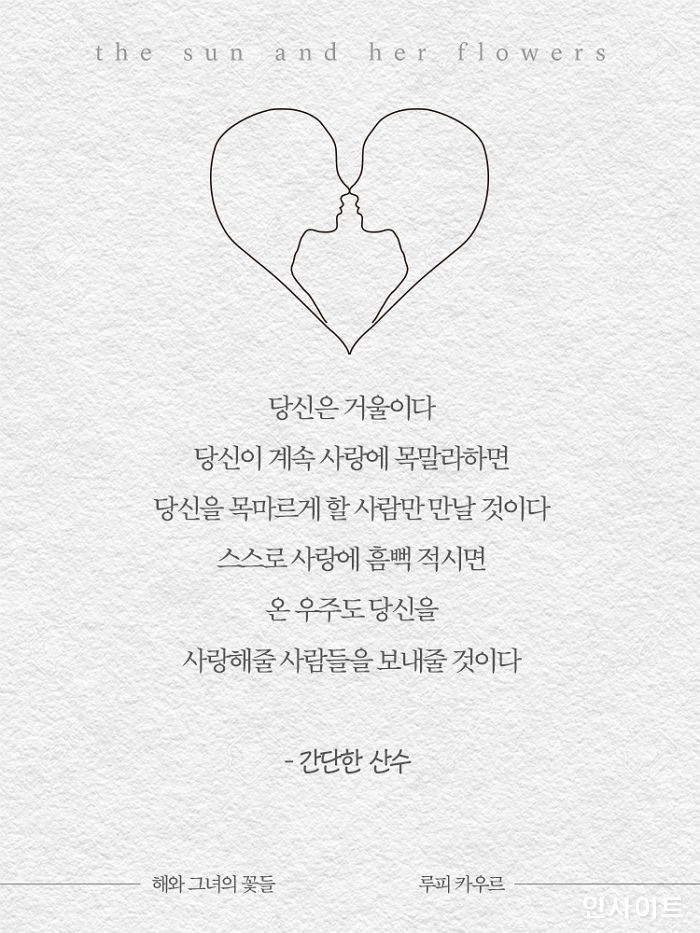 the sun and her flowers
당신은 거울이다
당신이 계속 사랑에 목말라하면
당신을 목마르게 할 사람만 만날 것이다
스스로 사랑에 흠뻑 적시면
온 우주도 당신을
사랑해줄 사람들을 보내줄 것이다
- 간단한 산수
해와 그녀의 꽃들 루피 카우르
인사이트